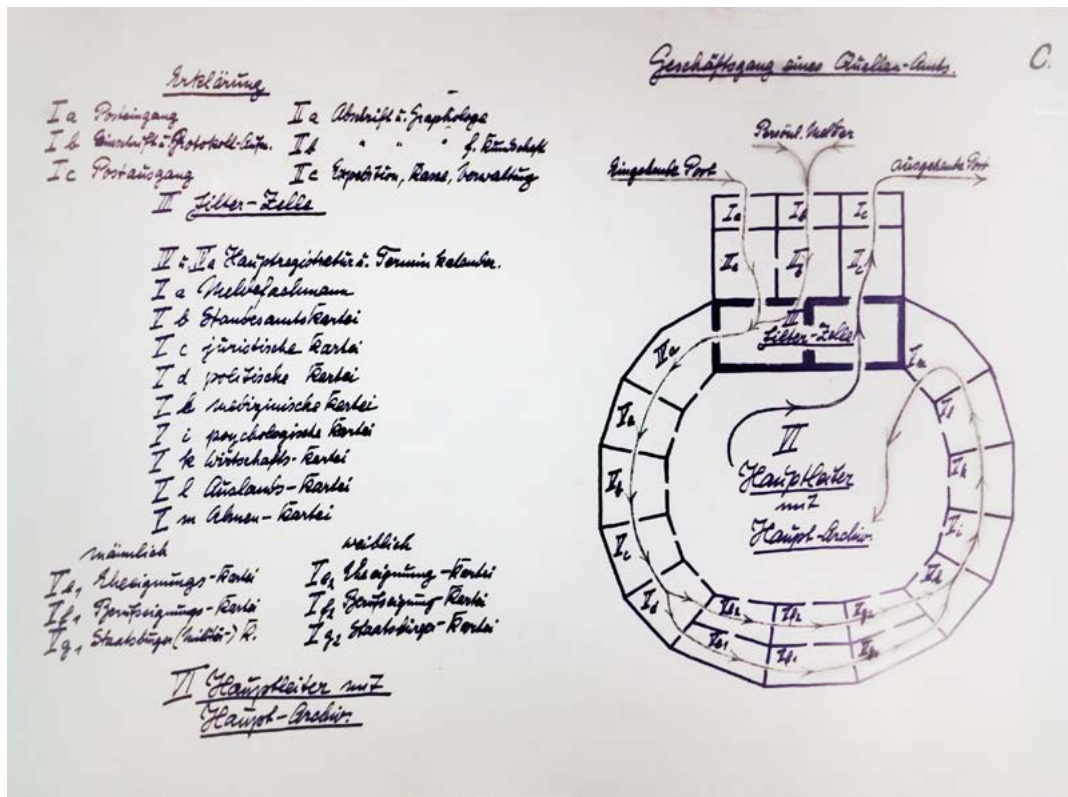 Geschäftsgang eines Quellen-Amts.
C.
Erklärung
I a Posteingang
I b Einschrift u. Protokoll-Aufn.
I c Postausgang
II a Abschrift u. Graphologe
II b " " " f. Kundschaft
II c Expedition, Kasse, Verwaltung
III Filter-Zelle
IV u. IVa Hauptregistratur u. Terminkalender.
V a Meldefachmann
V b Standesamtskartei
V c juristische Kartei
V d politische Kartei
V h medizinische Kartei
V i psychologische Kartei
V k Wirtschafts-Kartei
V l Auslands-Kartei
V m Ahnen-Kartei
männlich
V e1 Eheeignungs-Kartei
V f1 Berufseignungs-Kartei
V g1 Staatsbürger (Militär-) K.
weiblich
V e2 Eheeignung-Kartei
V f2 Berufseignung Kartei
V g2 Staatsbürger-Kartei
VI Hauptleiter mit
Haupt-Archiv.
Persönl. Melder
Eingehende Post
ausgehende Post
Ia
Ib
Ic
IIa
IIb
IIc
III
Filter-Zelle
IVa
Va
Vb
Vc
Vd
Ve1
Ve2
Vf1
Vf2
Vg1
Vg2
Vh
Vi
Vk
Vl
Vm
VI
Hauptleiter
mit
Haupt-Archiv.